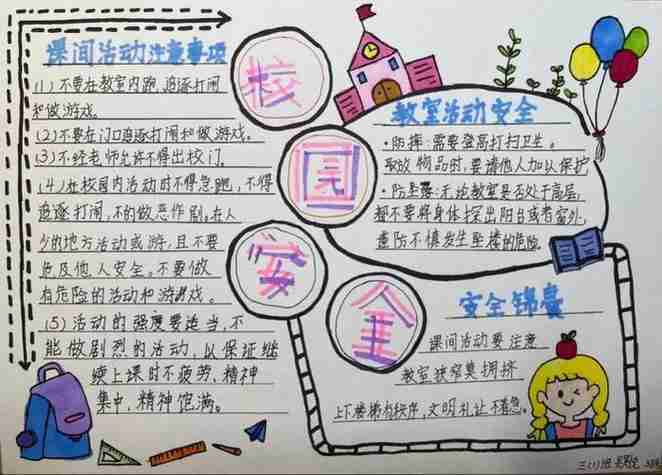 课间活动注意事项
(1)不要在教室内跑、追逐打闹
和做游戏。
(2)不要在门口追逐打闹和做游戏。
(3)不经老师允许不得出校门。
(4)在校园内活动时不得急跑,不得
追逐打闹,不的做恶作剧。在人
少的地方活动或游,且不要
危及他人安全。不要做
有危险的活动和游戏。
(5)活动的强度要适当,不
能做剧烈的活动,以保证继
续上课时不疲劳、精神
集中,精神饱满。
校
园
安
全
教室活动安全
·防摔:需要登高打扫卫生。
取放物品时,要请他人加以保护
·防坠落:无论教室是否处于高层,
都不要将身体探出阳台或者窗外,
谨防不慎发生坠楼的危险
安全锦囊
课间活动要注意
教室狭窄莫拥挤
上下楼梯有秩序,文明礼让不着急。
三(1)班